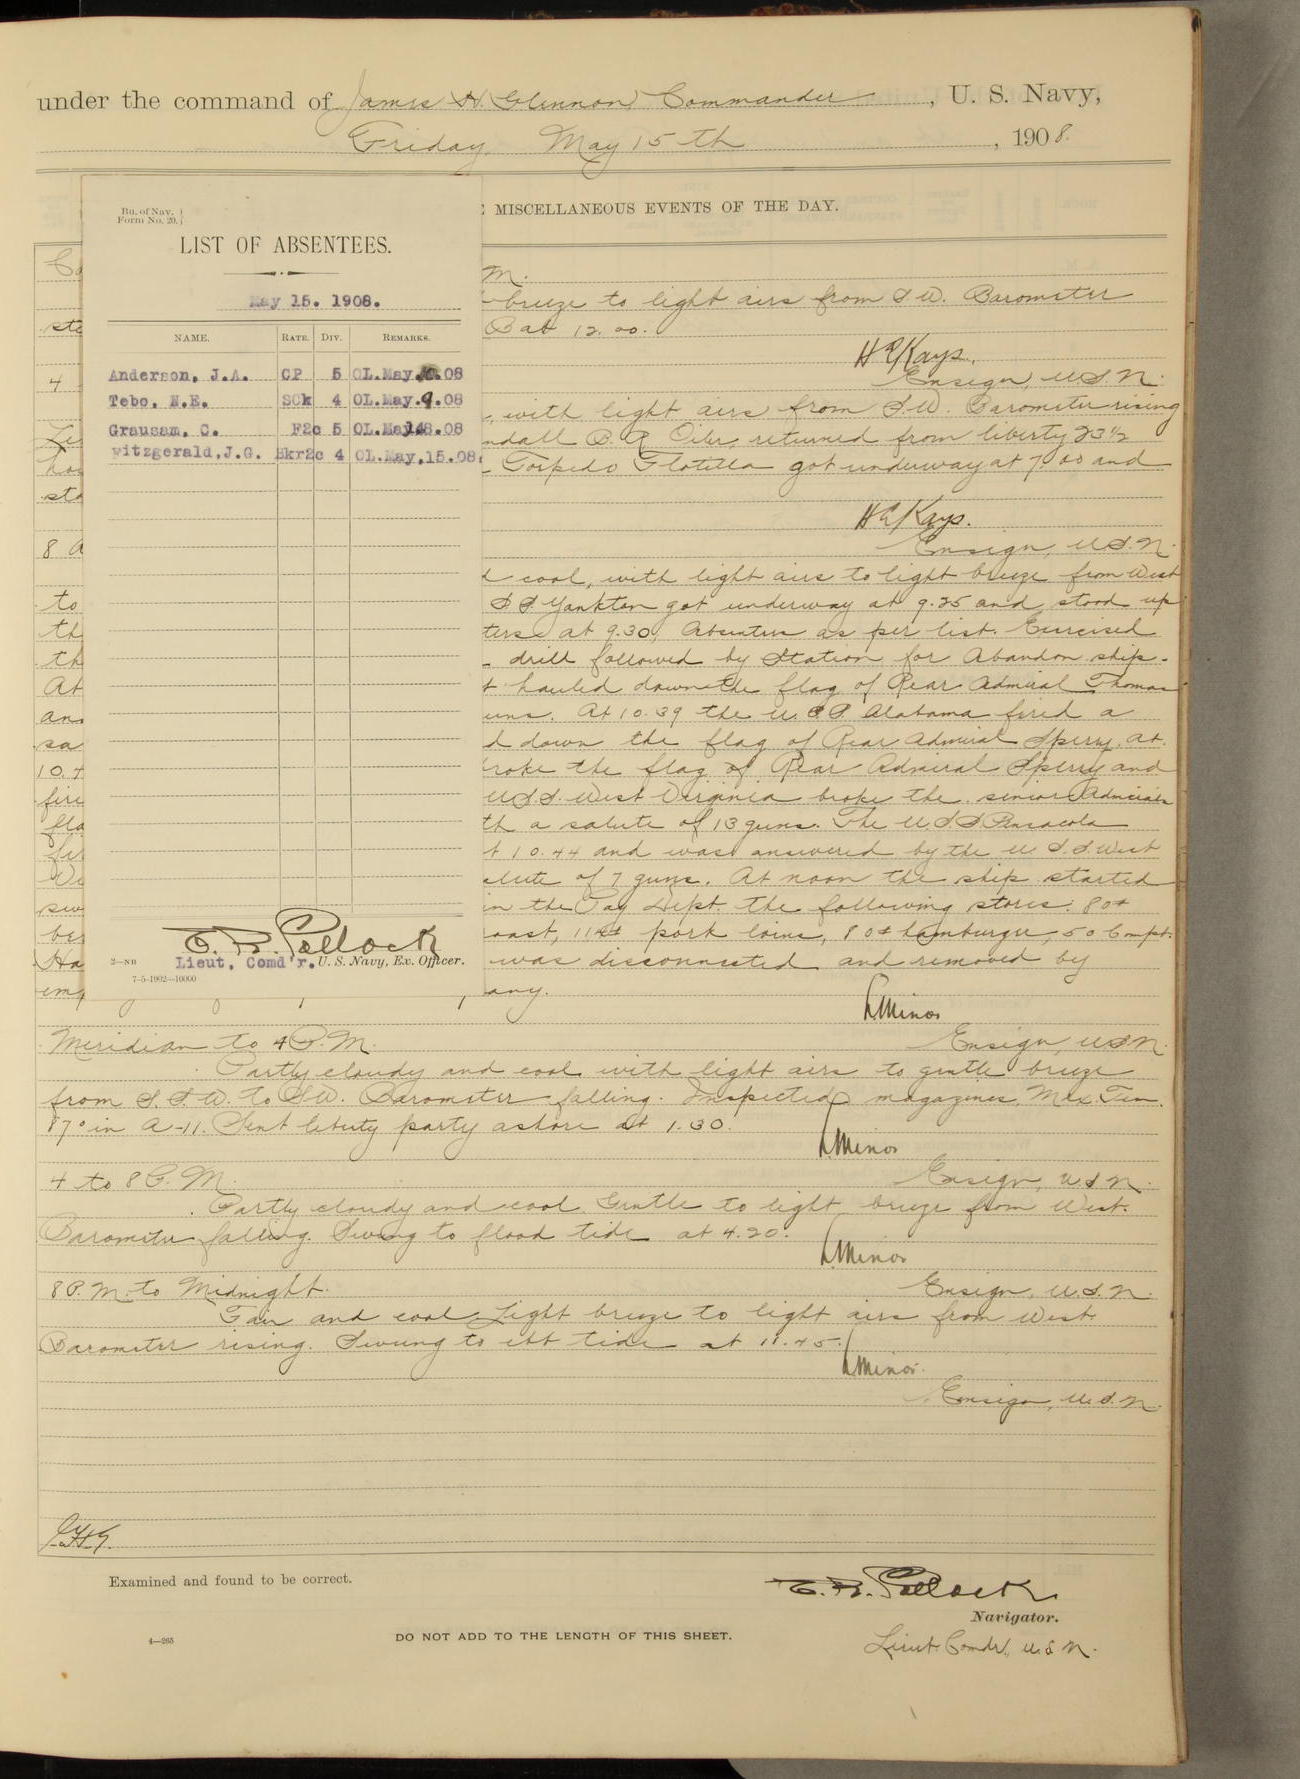 under the command of James H. Glennon, Commander, U. S. Navy,
Friday, May 15th, 1908.
MISCELLANEOUS EVENTS OF THE DAY.
Bu. of Nav.
Form No. 20.
LIST OF ABSENTEES.
May 15. 1908.
NAME. RATE. DIV. REMARKS.
Anderson, J.A. CP 5 OL.May.10.08
Tebo, N.E. SCk 4 OL.May.9.08
Grausam, C. F2c 5 OL.May 08
Fitzgerald,J.G. Bkr2c 4 OL.May.15.08
C. B. Pollock
Lieut. Comd'r. U. S. Navy, Ex. Officer.
2—NB
7-5-1902—10000
M.
breeze to light airs from S.W. Barometer
at 12.00.
H E Kays.
Ensign, U.S.N.
4
, with light airs from S.W. Barometer rising
ndall B. R. Oiler returned from liberty 23 1/2
Torpedo Flotilla got underway at 7.00 and
H E Kays.
Ensign, U.S.N.
8 A
d cool, with light airs to light breeze from West
to S S Yankton got underway at 9.25 and stood up
th ters at 9.30, Absentees as per list. Exercised
th drill followed by Station for Abandon ship.
At t hauled down the flag of Rear Admiral Thomas
an uns. At 10.39 the U.S.S Alabama fired a
sa d down the flag of Rear Admiral Sperry. At
10.4 roke the flag of Rear Admiral Sperry and
fire U.S.S. West Virginia broke the senior Admirals
fla th a salute of 13 guns. The U.S.S Pensacola
t 10.44 and was answered by the U.S.S. West
alute of 7 guns. At noon the ship started
in the Pay Dept. the following stores: 80#
oast, 11# pork loins, 80# hamburger, 50
Ha was disconnected and removed by
any.
L. Minor
Ensign, U.S.N.
Meridian to 4 P.M.
Partly cloudy and cool with light airs to gentle breeze
from S.S.W. to S.W. Barometer falling. Inspected magazines, Max. Tem.
87° in A-11. Sent liberty party ashore at 1.30.
L. Minor
Ensign, U.S.N.
4 to 8 P.M.
Partly cloudy and cool. Gentle to light breeze from West.
Barometer falling. Swung to flood tide at 4.20.
L. Minor
Ensign, U.S.N.
8 P.M. to Midnight.
Fair and cool Light breeze to light airs from West
Barometer rising. Swung to ebb tide at 11.45.
L. Minor.
Ensign, U.S.N.
Examined and found to be correct.
C. B. Pollock
Navigator.
Lieut. Comdr., U.S.N.
4—265
DO NOT ADD TO THE LENGTH OF THIS SHEET.